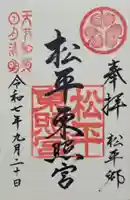 奉拝
松平郷
松平東照宮
松平
東照宮
天下和順
日月清明
令和七年九月二十日